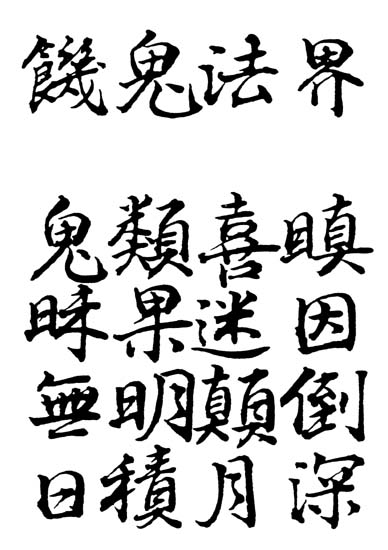 饑鬼法界
鬼類喜瞋
昧果迷因
無明顛倒
日積月深